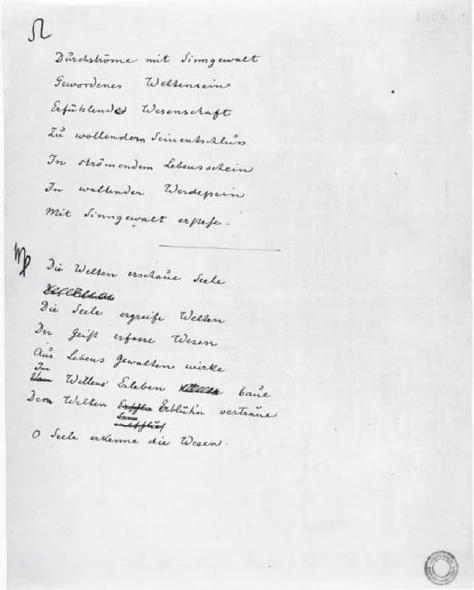 ♌
Durchströme mit Sinngewalt
Gewordenes Weltensein
Erfühlende Wesenschaft
Zu wollendem Seinentschluss
In strömendem Lebensschein
In waltender Werdepein
Mit Sinngewalt erstehe.
♍
Die Welten erschaue Seele
Die Seele ergreife Welten
Der Geist erfasse Wesen
Aus Lebens Gewalten wirke
Im
Willens Erleben baue
Dem Welten Erblüh'n vertraue
O Seele erkenne die Wesen.